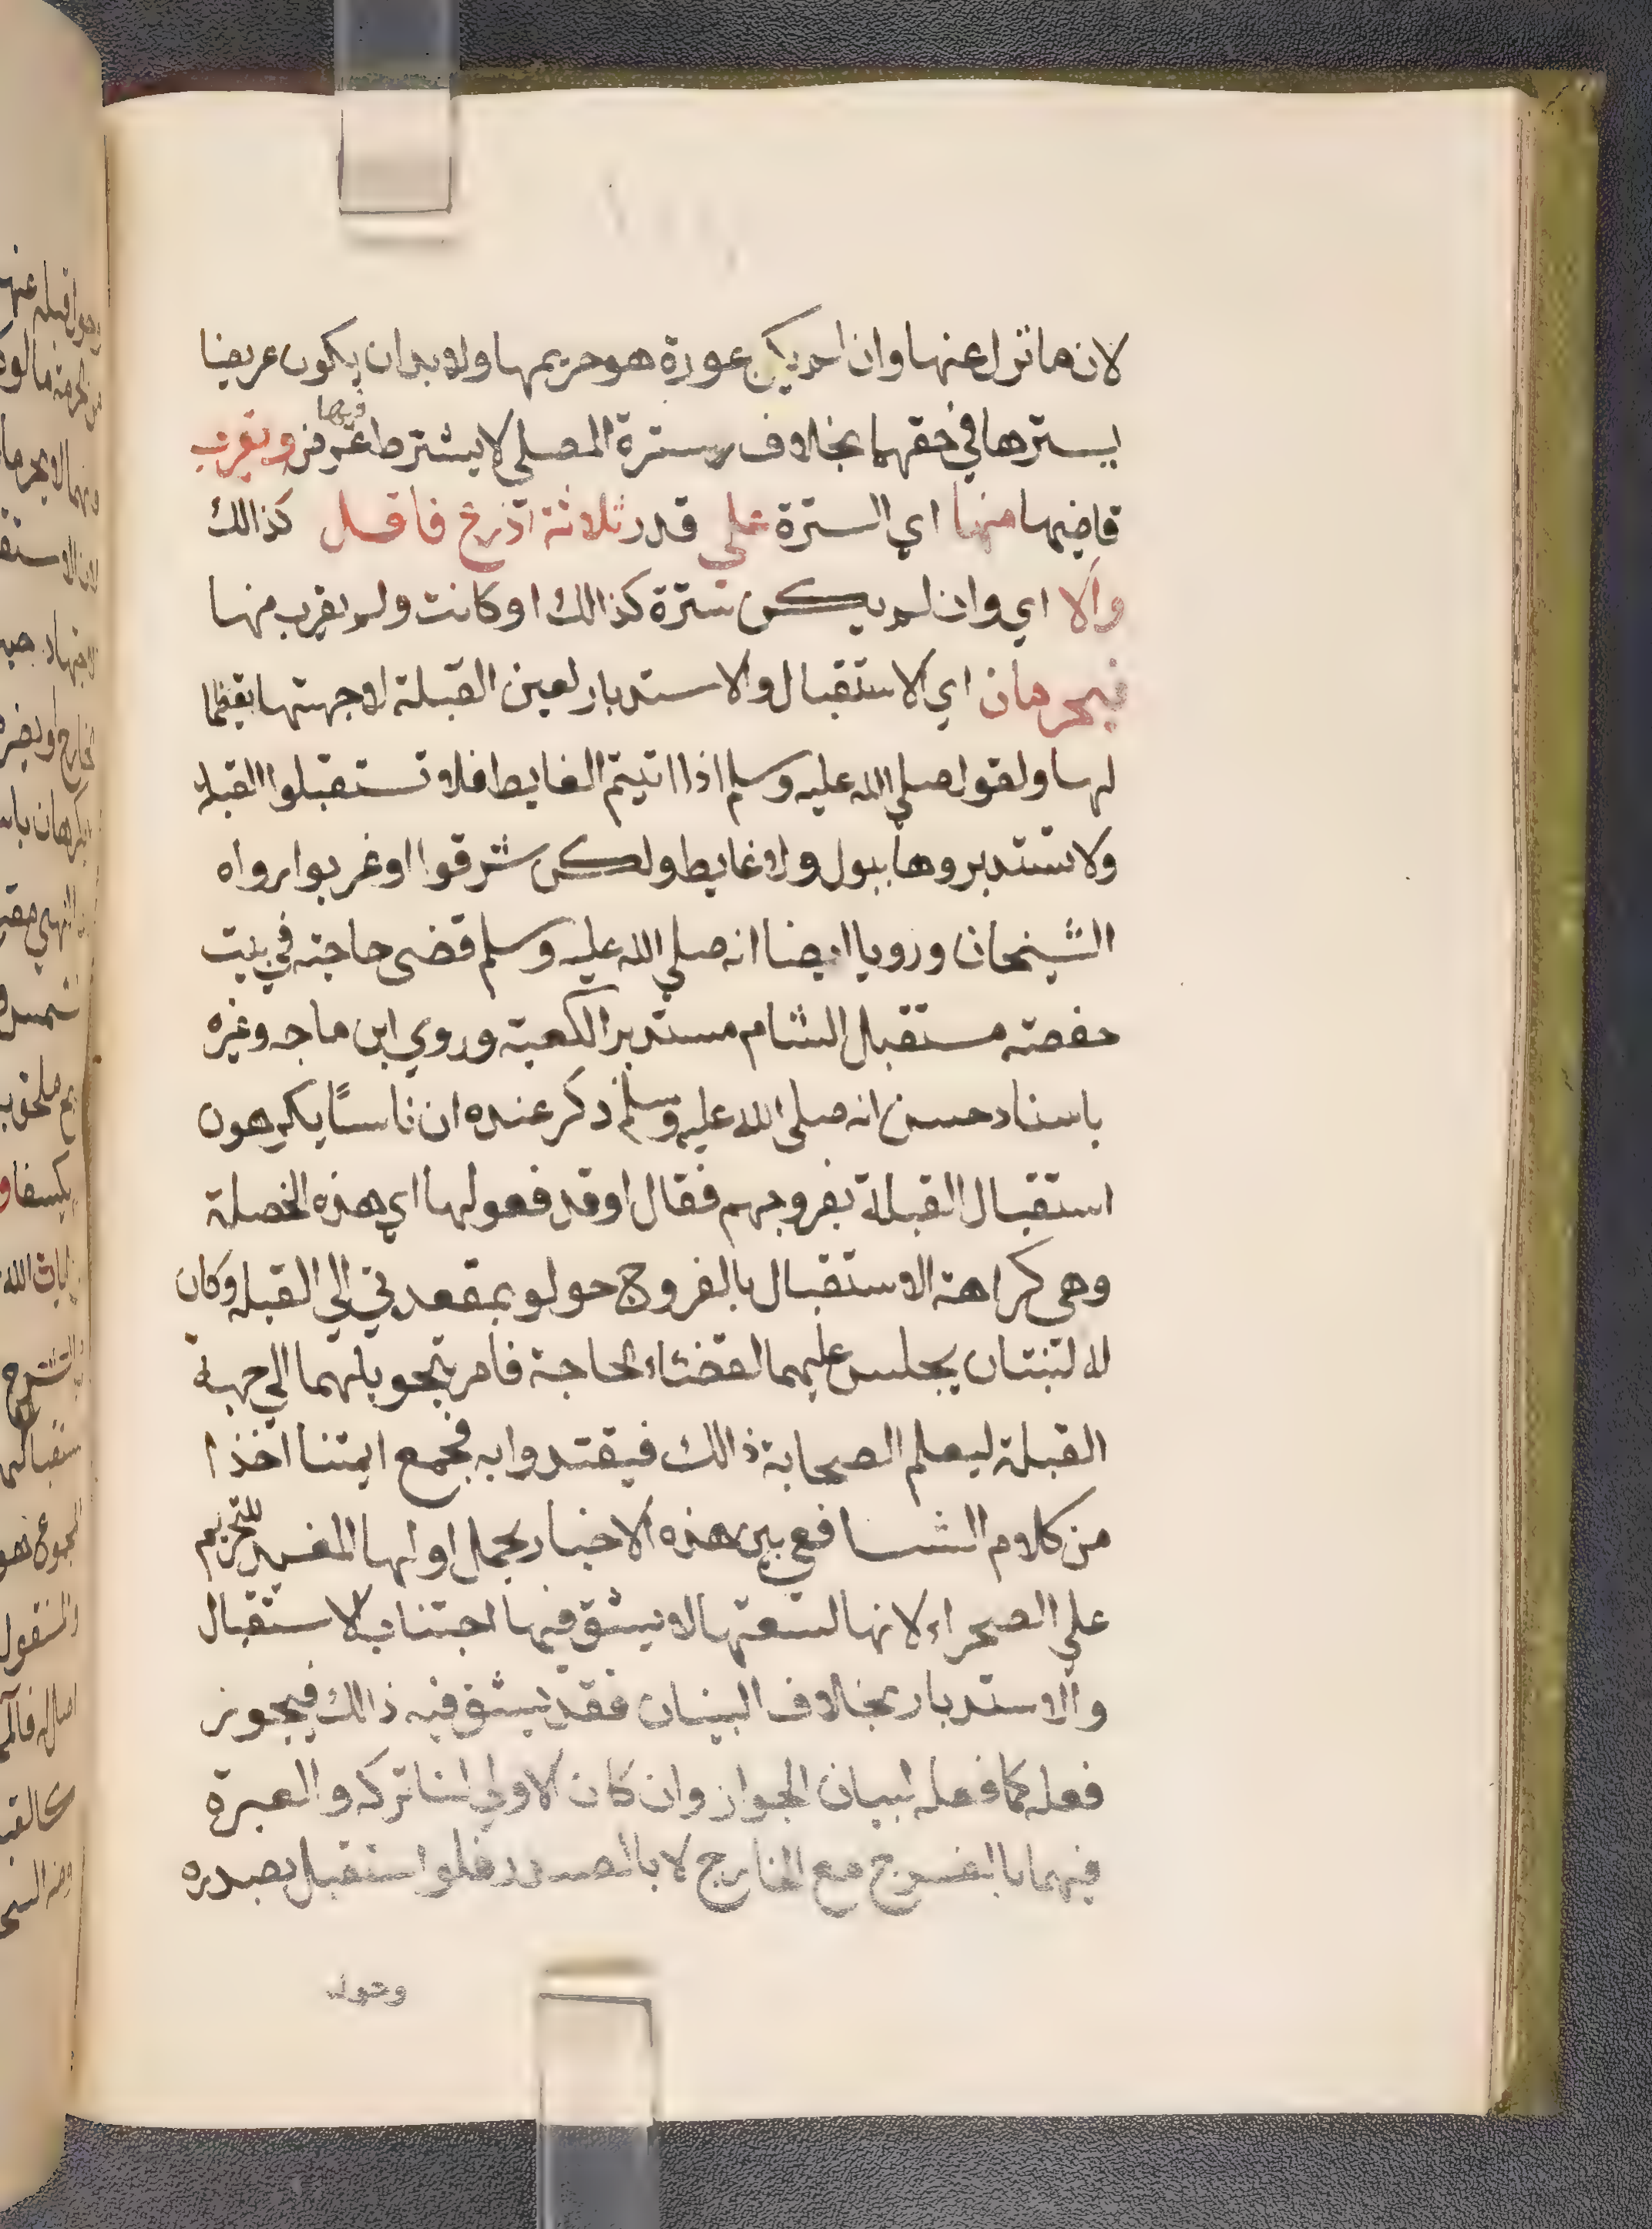 لان ما نزل عنها وان لم يكن عورة هو حريمها ولا بد ان يكون عريضا
يسترها في حقهما بخلاف سترة المصلي لا يشترط فيها عرض ويقرب
قاضيها منها اي السترة على قدر ثلاثة اذرع فاقل كذالك
والا اي وان لم يكن سترة كذالك او كانت ولم يقرب منها
فيحرمان اي الاستقبال والاستدبار لعين القبلة لا جهتها تعظيما
لها ولقوله صلي الله عليه وسلم اذا اتيتم الغايط فلا تستقبلوا القبله
ولا تستدبروها ببول ولا غايط ولكن شرقوا او غربوا رواه
الشيخان ورويا ايضا انه صلي الله عليه وسلم قضى حاجته في بيت
حفصة مستقبل الشام مستدبر الكعبة وروي ابن ماجه وغيره
باسناد حسن انه صلى الله عليه وسلم ذكر عنده ان ناسًا يكرهون
استقبال القبلة بفروجهم فقال او قد فعولها اي هذه الخصلة
وهي كراهة الاستقبال بالفروج حولو بمقعدتي الي القبله وكان
له لبنتان يجلس عليهما لقضاء الحاجة فامر بتحويلهما الي جهة
القبلة ليعلم الصحابة ذالك فيقتدوا به فجمع ايمتنا اخذا
من كلام الشافعي بين هذه الاخبار بحمل اولها المفيد للتحريم
على الصحراء لانها لسعتها لا يشق فيها اجتناب الاستقبال
والاستدبار بخلاف البنيان فقد يشق فيه ذالك فيجوز
فعله كما فعله لبيان الجواز وان كان الاولي لنا تركه والعبرة
فيهما بالفرج مع الخارج لا بالصدر فلو استقبل بصدره
وحول